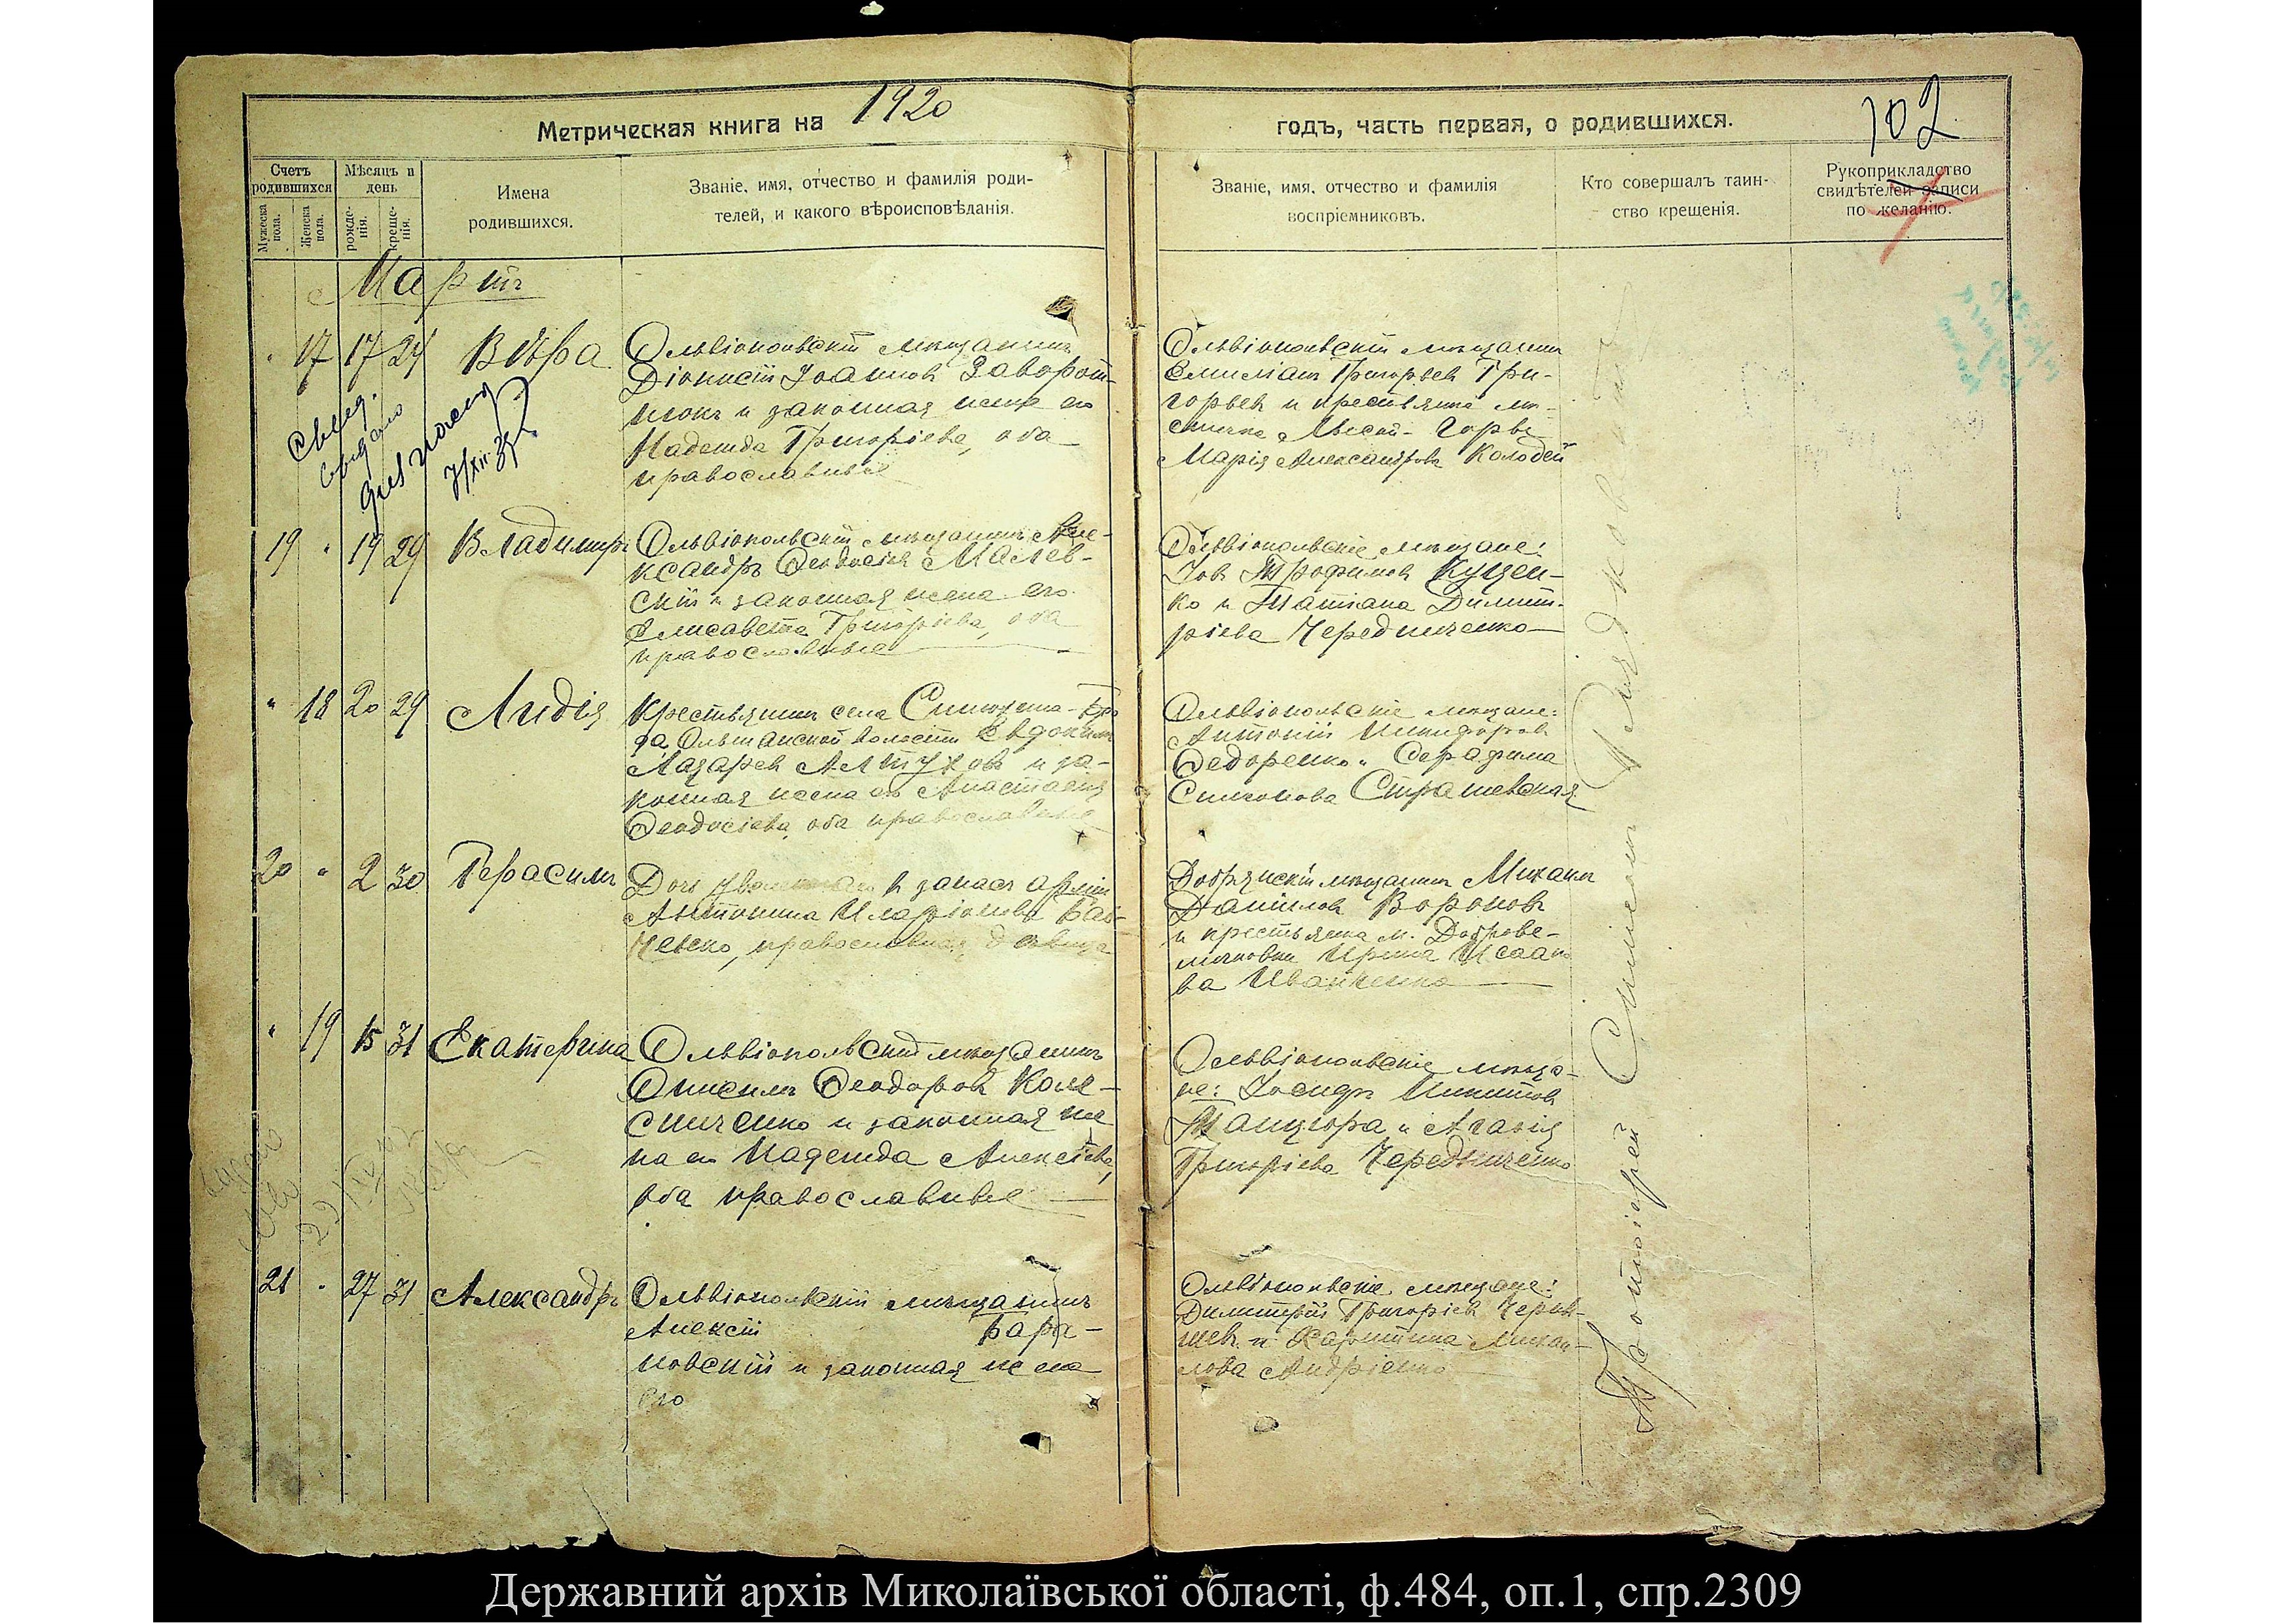 1920
102
Метрическая книга на
годъ, часть первая, о родившихся.
Счетъ родившихся
Мѣсяцъ и день
Мужеска пола.
Женска пола.
рожде-нія.
креще-нія.
Имена
родившихся.
Званіе, имя, отчество и фамилія роди-
телей, и какого вѣроисповѣданія.
Званіе, имя, отчество и фамилія
воспріемниковъ.
Кто совершалъ таин-
ство крещенія.
Рукоприкладство
свидѣтелей записи
по желанію.
Мартъ
" 17 17 24 Вѣра
Ольвіопольскій мѣщанинъ
Діонисій Іоанновъ Заворот-
нюкъ и законная жена его
Надежда Григоріева, оба
православные
Ольвіопольскій мѣщанинъ
Емиліанъ Григорьевъ Гри-
горьевъ и крестьянка
Лысой-Горы
Марія Александрова Колодей
Свид.
выдано
7/XII-35
19 " 19 29 Владимиръ
Ольвіопольскій мѣщанинъ Але-
ксандръ Ѳеодосіевъ Малев-
скій и законная жена его
Елисавета Григоріева, оба
православные
Ольвіопольскіе мѣщане:
Іовъ Трофимовъ Куцен-
ко и Татіана Димит-
ріева Чередниченко
" 18 20 29 Лидія
Крестьянинъ села Синюхина-Бро
да Ольшанской волости Евдокимъ
Лазаревъ Алтуховъ и за-
конная жена его Анастасія
Ѳеодосіева, оба православные
Ольвіопольскіе мѣщане:
Антоній Никифоровъ
Ѳедоренко и Серафима
Симонова Страшевская
20 " 2 30 Герасимъ
Дочь уволеннаго въ запасъ арміи
Антонина Иларіонова
православная, дѣвица
Добрянскій мѣщанинъ Михаилъ
Даніиловъ Вороновъ
и крестьянка м. Доброве-
личковки Ирина Исаако
ва Иванченко
" 19 15 31 Екатерина
Ольвіопольскій мѣщанинъ
Онисимъ Ѳеодоровъ Коле-
сниченко и законная же
на его Надежда Алексіева,
оба православные
Ольвіопольскіе мѣща-
не: Іосифъ Никитовъ
Танцюра и Агафія
Григоріева Чередниченко
21 " 27 31 Александръ
Ольвіопольскій мѣщанинъ
Алексій Бара-
новскій и законная жена
его
Ольвіопольскіе мѣщане:
Димитрій Григоріевъ Черны-
шевъ и Харитина Михаи-
лова Андріенко
Протоіерей Симеонъ
Державний архів Миколаївської області, ф.484, оп.1, спр.2309